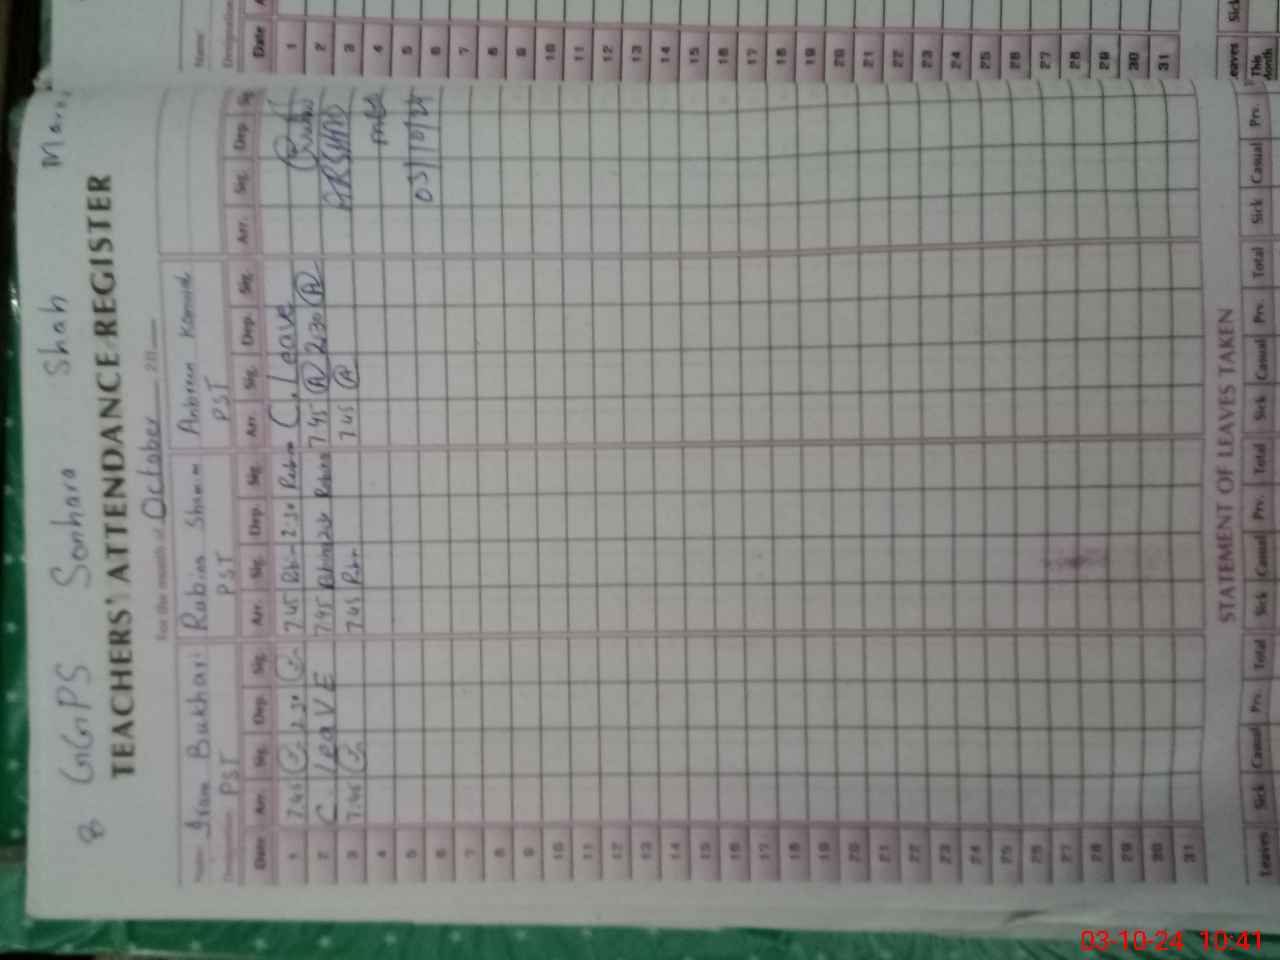 8 GGPS Sonhara Shah
TEACHERS' ATTENDANCE REGISTER
For the month of October 20
Name Iram Bukhari Rubina Shamim Anbreen Kanwal
PST PST PST
Date Arr. Sig. Dep. Sig. Arr. Sig. Dep. Sig. Arr. Sig. Dep. Sig. Arr. Sig. Dep. Sig.
1 7.45 2.30 7.45 Rubin 2.30 Rubin C. Leave
2 C. leaVE 7.45 Rubina 2.30 Rubina 7.45 A 2.30 A ARSHAD
3 7.45 7.45 Rubin 7.45 A
4
5 03/10/24
6
7
8
9
10
11
12
13
14
15
16
17
18
19
20
21
22
23
24
25
26
27
28
29
30
31
STATEMENT OF LEAVES TAKEN
Leaves Sick Casual Prv. Total Sick Casual Prv. Total Sick Casual Prv. Total Sick Casual Prv.
Name
Designation
Date
1
2
3
4
5
6
7
8
9
10
11
12
13
14
15
16
17
18
19
20
21
22
23
24
25
26
27
28
29
30
31
Leaves Sick
This Month
03-10-24 10:41